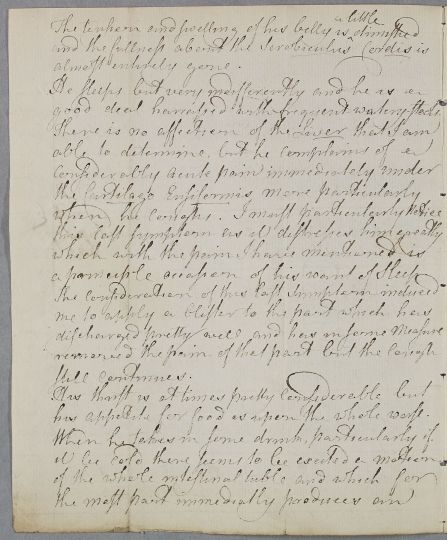 The tension and swelling of his belly is a little diminished
and the fullness about the Scrobiculus Cordis is
almost entirely gone.
He sleeps but very indifferently and he is a
good deal harrassed with frequent watery stools.
There is no affection of the Liver that I am
able to determine, but he complains of a
considerably acute pain immediately under
the Cartilago Ensiformis more particularly
when he coughs. I must particularly notice
this last symptom as it distresses him greatly
which with the pain I have mentioned is
a principle occasion of his want of sleep
The consideration of this last symptom induced
me to apply a blister to the part which has
discharged pretty well and has in some measure
removed the pain of that part but the cough
still continues.
His thirst is at times pretty considerable but
his appetite for food is upon the whole worse.
When he takes in some drink, particularly if
it be cold there seems to be excited a motion
of the whole intestinal tube and which for
the most part immediatly produces an